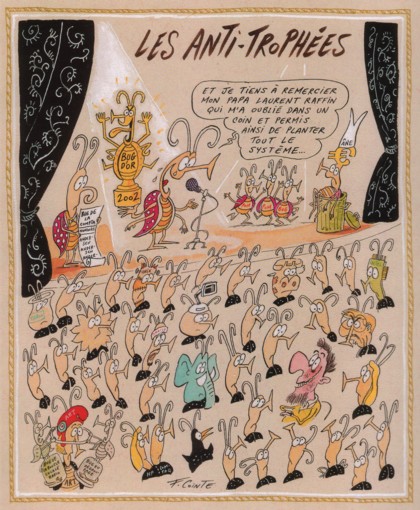 LES ANTI-TROPHÉES
ET JE TIENS À REMERCIER
MON PAPA LAURENT RAFFIN
QUI M'A OUBLIÉ DANS UN
COIN ET PERMIS
AINSI DE PLANTER
TOUT LE
SYSTÈME...
ÂNE
BOG
D'OR
2002
BOG DE
LA
ART
ART
F. COINTE